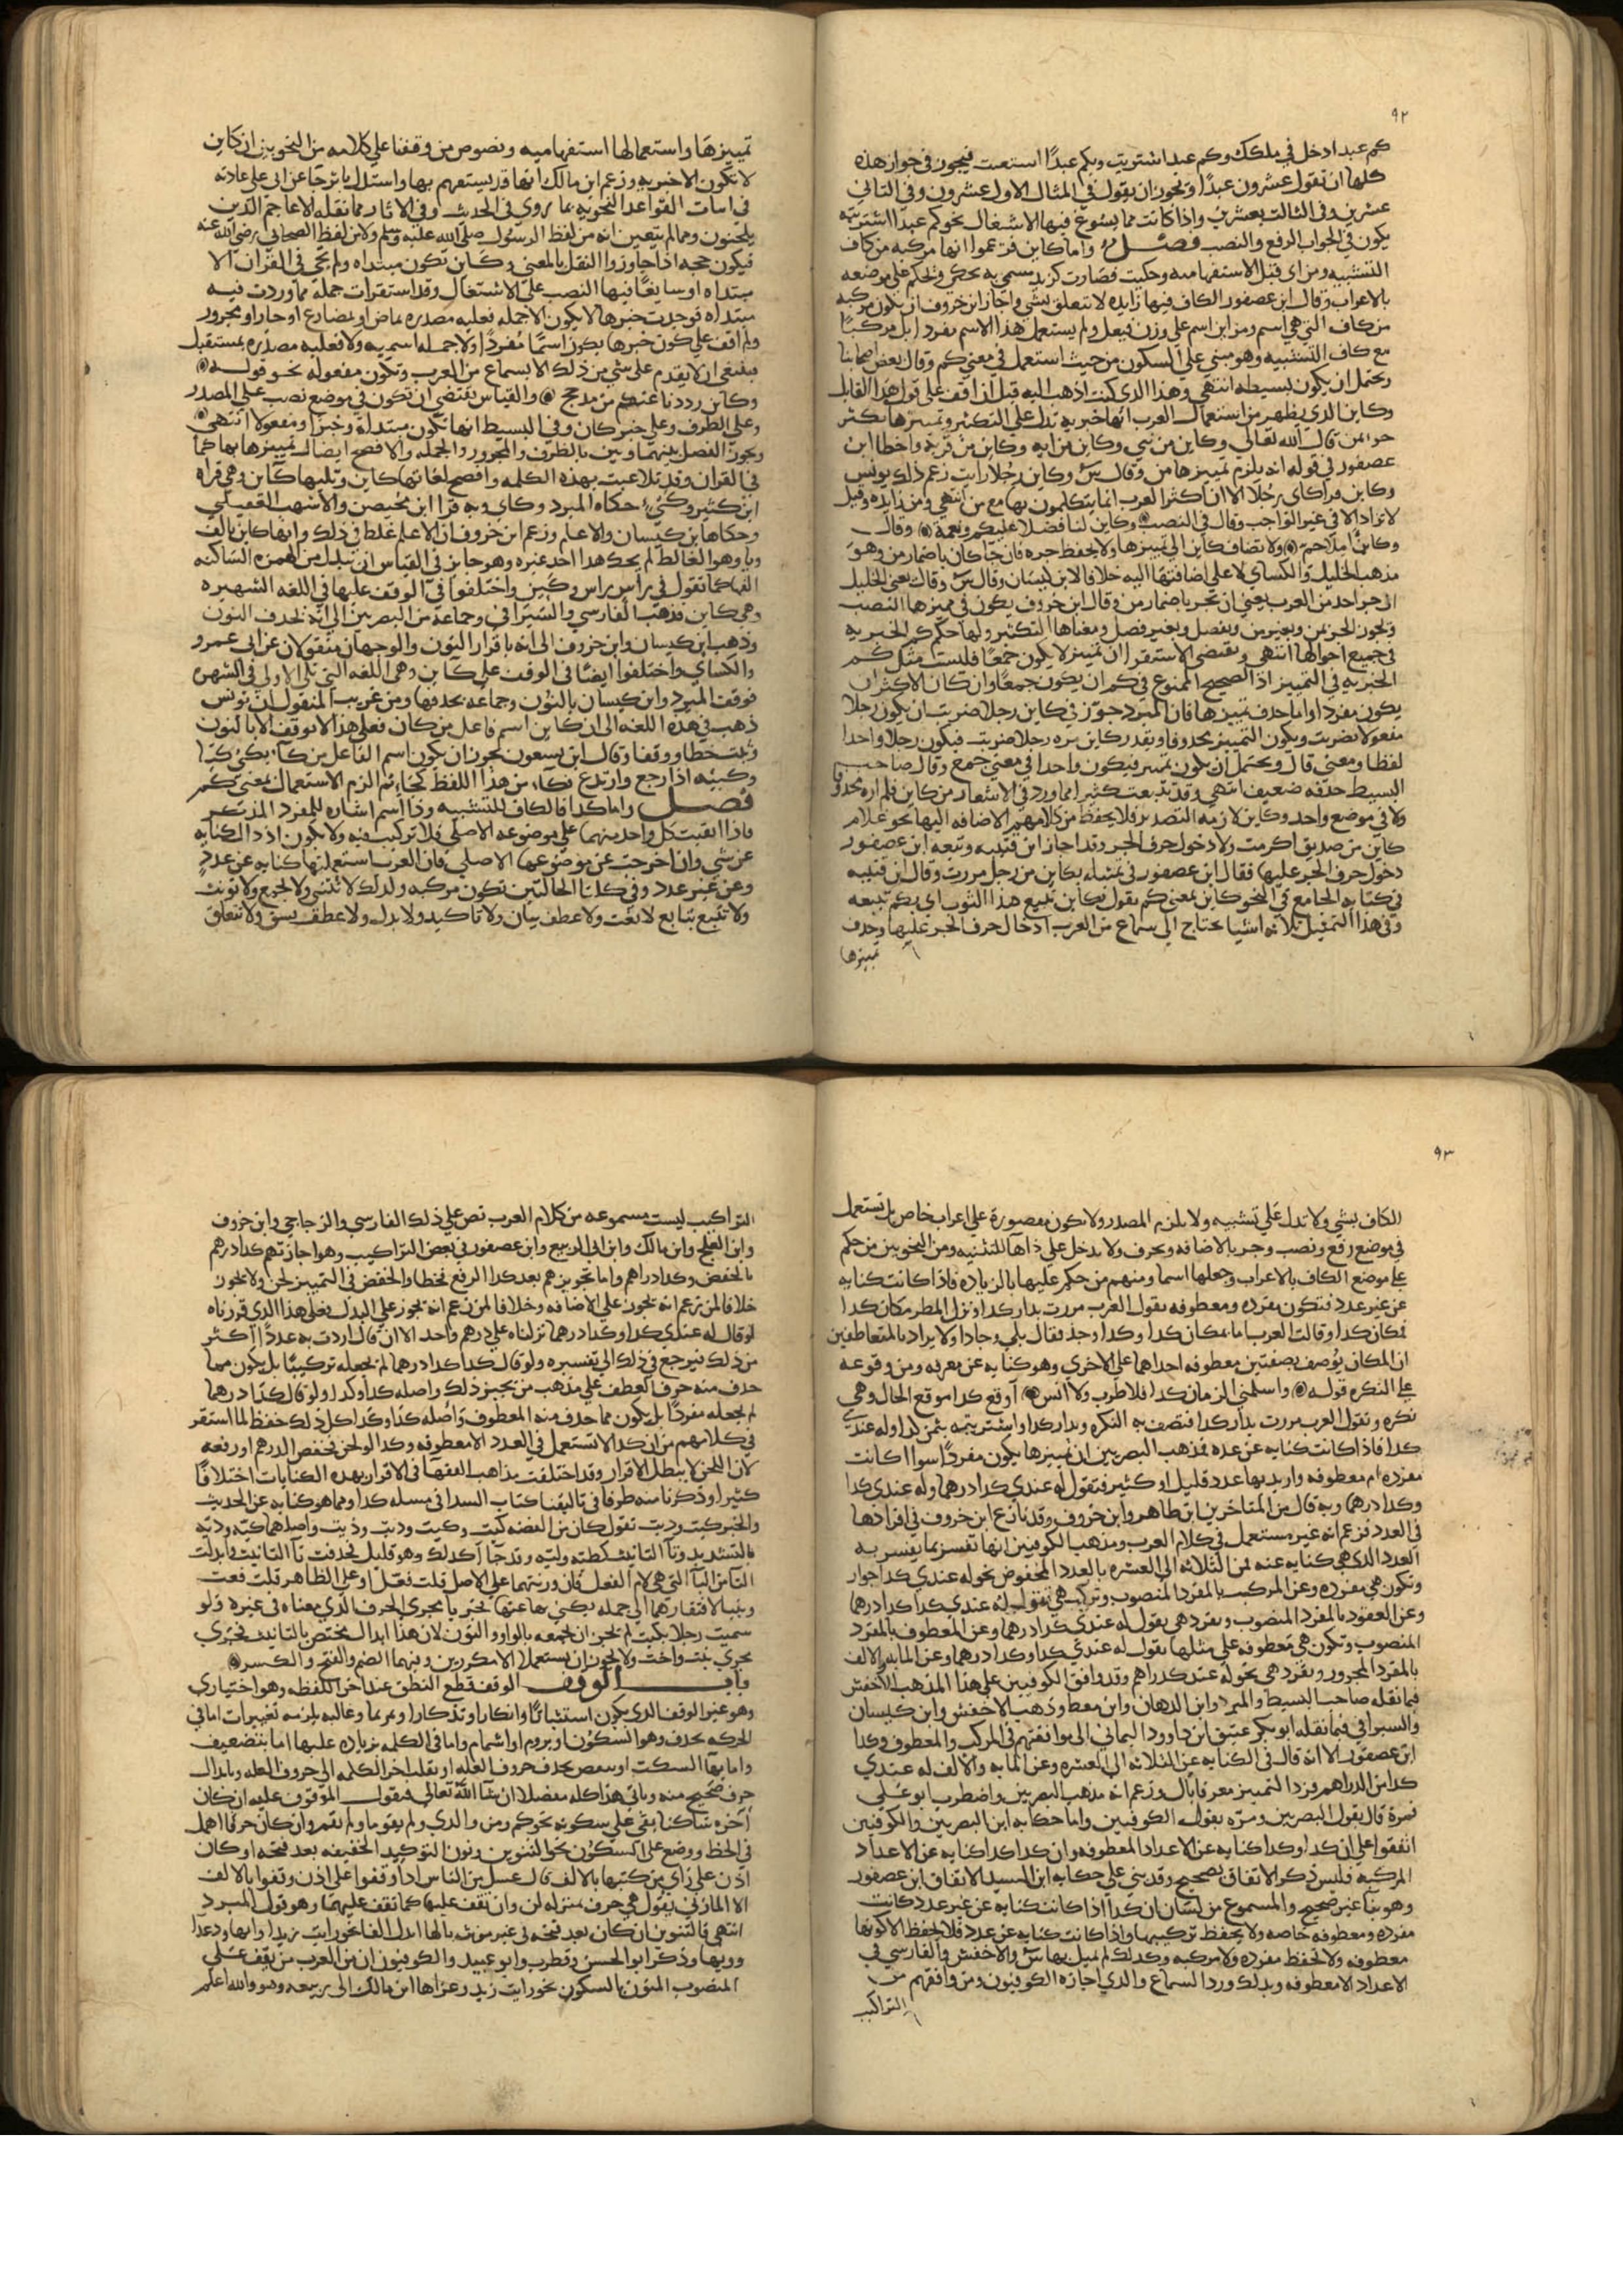 ٩٢
كم عبد ادخل في ملكك وكم عبد اشتريت وبكم عبدا استعنت فيجوز في جواب هذه
كلها ان تقول عشرون عبدا ويجوز ان يقول في المثال الاول عشرون وفي الثاني
عشرين وفي الثالث بعشرين واذا كانت مما يسوغ فيها الاشتغال نحو كم عبدا اشتريته
يكون في الجواب الرفع والنصب فصل واما كاين فزعموا انها مركبة من كاف
التشبيه ومن اي قبل الاستفهاميه وحكيت فصارت كزيد مسمي به يحكي ويحكم علي موضعه
بالاعراب وقال ابن عصفور الكاف فيها زايده لا تتعلق بشي واجاز ابن خروف ان يكون مركبه
من كاف التي هي اسم ومن اين اسم علي وزن فيعل ولم يستعمل هذا الاسم مفردا بل مركبا
مع كاف التشبيه وهو مبني علي السكون من حيث استعمل في معني كم وقال بعض اصحابنا
ويحتمل ان يكون بسيطه انتهي وهذا الذي كنت اذهب اليه قبل ان اقف علي قول هذا القايل
وكاين الذي يظهر من استعمال العرب انها خبريه تدل علي التكثير وتمييزها يكثر
جره بمن قال الله تعالي وكاين من نبي وكاين من ايه وكاين من قريه واخطا ابن
عصفور في قوله انه يلزم تمييزها من وقال س وكاين رجلا رايت زعم ذلك يونس
وكاين قد اتاني رجلا الا ان اكثر العرب انما يتكلمون بها مع من انتهي ومن زايده وقيل
لا تزاد الا في غير الواجب وقال في النصب وكاين لنا فضلا عليكم ونعمة وقال
وكاين الما حم ولا تضاف كاين الي تمييزها ولا يحفظ جره فان جا كان باضمار من وهو
مذهب الخليل والكساي لا علي اضافتها اليه خلافا لابن كيسان وقال س وقال يعني الخليل
ان جر احد من العرب يعني ان تجر باضمار من وقال ابن خروف يكون في مميزها النصب
ويجوز الجر بمن وبغير من وبفصل وبغير فصل ومعناها التكثير ولها حكم كم الخبريه
في جميع احوالها انتهي ويقتضي الاستقرا ان تمييز لا يكون جمعا فليست مثل كم
الخبريه في التمييز اذ الصحيح الممنوع في كم ان يكون جمعا وان كان الاكثر ان
يكون مفردا واما حذف تمييزها فان المبرد جوز في كاين رجلا ضربت ان يكون رجلا
مفعولا بضربت ويكون التمييز محذوفا ويقدر كاين مره رجلا ضربت فيكون رجلا واحدا
لفظا ومعني قال ويحتمل ان يكون تمييز فيكون واحدا في معني جمع وقال صاحب
البسيط حذفه ضعيف انتهي وقد تتبعت كثيرا مما ورد في الاشعار من كاين فلم اره محذوفا
ولا في موضع واحد وكاين لازمه التصدير فلا يحفظ من كلامهم الاضافه اليها نحو غلام
كاين من صديق اكرمت ولا دخول حرف الجر وقد اجاز ابن قتيبه وتبعه ابن عصفور
دخول حرف الجر عليها فقال ابن عصفور في تمثيله بكاين من رجل مررت وقال ابن قتيبه
في كتابه الجامع في النحو كاين بمعني كم تقول بكاين تبيع هذا الثوب اي بكم تبيعه
وفي هذا التمثيل ثلاثة اشيا يحتاج الي سماع من العرب ادخال حرف الجر عليها وحذف
تمييزها
تمييزها واستعمالها استفهاميه ونصوص من وقفنا علي كلامه من النحويين ان كاين
لا تكون الا خبريه وزعم ابن مالك انها قد يستفهم بها واستدل باثر جا عن ابي علي عادته
في اثبات القواعد النحويه بما روي في الحديث وفي الاثار مما نقله الاعاجم الذين
يلحنون ومما لم يتعين انه من لفظ الرسول صلي الله عليه وسلم ولا من لفظ الصحابي رضي الله عنه
فيكون حجه اذ اجازوا النقل بالمعني وكاين تكون مبتداه ولم يجي في القران الا
مبتداه او سايغا فيها النصب علي الاشتغال وقد استقرات جمله مما وردت فيه
مبتداه فوجدت خبرها لا يكون الا جمله فعليه مصدره بماض او بمضارع او جار او مجرور
ولم اقف علي كون خبرها يكون اسما مفردا ولا جمله اسميه ولا فعليه مصدره بمستقبل
فينبغي ان لا يقدم علي شي من ذلك الا بسماع من العرب وتكون مفعوله نحو قوله
وكاين رددنا عنكم من مدجج والقياس يقتضي ان تكون في موضع نصب علي المصدر
وعلي الظرف وعلي خبر كان وفي البسيط انها تكون مبتداة وخبرا ومفعولا انتهي
ويجوز الفصل بينهما وبين بالظرف والمجرور والجمله والافصح ايصال تمييزها بها كما
في القران وقد تلاعبت بهذه الكلمه وافصح لغاتها كاين وتليها كاين وهي قراه
ابن كثير وكئي حكاه المبرد وكاي وبه قرا ابن محيصن والاشهب العقيلي
وحكاها ابن كيسان والاعلم وزعم ابن خروف ان الاعلم غلط في ذلك وانها كاين بالف
ويا وهو الغالط لم يحك هذا احد غيره وهو جايز في القياس ان تبدل من الهمزه الساكنه
الفا كما تقول في راس راس وكيين واختلفوا في الوقف عليها في اللغه الشهيره
وهي كاين فذهب الفارسي والسيرافي وجماعه من البصريين الي انه بحذف النون
وذهب ابن كيسان وابن خروف الي انه باقرار النون والوجهان منقولان عن ابي عمرو
والكساي واختلفوا ايضا في الوقف علي كاين وهي اللغه التي تلي الاولي في الشهره
فوقف المبرد وابن كيسان بالنون وجماعه بحذفها ومن غريب المنقول ان يونس
ذهب في هذه اللغه الي ان كاين اسم فاعل من كان فعلي هذا لا توقف الا بالنون
وثبت خطا ووقفا وقال ابن يسعون يجوز ان يكون اسم الفاعل من كاء يكئ كيئا
وكيئه اذا رجع وارتدع فكاء من هذا اللفظ كجاء ثم الزم الاستعمال بمعني كم
فصل واما كذا فالكاف للتشبيه وذا اسم اشاره للمفرد المذكر
فاذا ابقيت كل واحد منهما علي موضوعه الاصلي فلا تركيب فيه ولا يكون اذ ذاك كنايه
عن شي وان اخرجت عن موضوعها الاصلي فان العرب استعملتها كنايه عن عدد
وعن غير عدد وفي كلتا الحالتين تكون مركبه ولذلك لا تثني ولا تجمع ولا تونث
ولا تتبع بتابع لا نعت ولا عطف بيان ولا تاكيد ولا بدل ولا عطف نسق ولا تتعلق
٩٣
الكاف بشي ولا تدل علي تشبيه ولا يلزم المصدر ولا تكون مقصورة علي اعراب خاص بل تستعمل
في موضع رفع ونصب وجر بالاضافه وبحرف ولا يدخل علي ذاها للتنبيه ومن النحويين من حكم
علي موضع الكاف بالاعراب وجعلها اسما ومنهم من حكم عليها بالزياده فاذا كانت كنايه
عن غير عدد فتكون مفرده ومعطوفه تقول العرب مررت بدار كذا ونزل المطر مكان كذا
فمكان كذا وقالت العرب اما بمكان كذا وكذا وجذ فقال بلي وجاذا ولا يراد بالمتعاطفين
ان المكان يوصف بصفتين معطوفه احداهما علي الاخري وهو كنايه عن معرفه ومن وقوعه
علي النكره قوله واسلمني الزمان كذا فلا طرب ولا انس اوقع كذا موقع الحال وهي
نكره وتقول العرب مررت بدار كذا فتصف به النكره وبدار كذا واشتريته بثمن كذا وله عندي
كذا فاذا كانت كنايه عن عدد فمذهب البصريين ان تمييزها يكون مفردا سوا اكانت
مفرده ام معطوفه واريد بها عدد قليل او كثير فتقول له عندي كذا درهما وله عندي كذا
وكذا درهما وبه قال من المتاخرين ابن طاهر وابن خروف وقد نازع ابن خروف في افرادها
في العدد فزعم انه غير مستعمل في كلام العرب ومذهب الكوفيين انها تفسر بما يفسر به
العدد الذي هي كنايه عنه فمن الثلاثه الي العشره بالعدد المخفوض نحو له عندي كذا جوار
وتكون هي مفرده وعن المركب بالمفرد المنصوب وتركب هي تقول له عندي كذا كذا درهما
وعن العقود بالمفرد المنصوب وتفرد هي تقول له عندي كذا درهما وعن المعطوف بالمفرد
المنصوب وتكون هي معطوفه علي مثلها تقول له عندي كذا وكذا درهما وعن المايه والالف
بالمفرد المجرور وتفرد هي نحو له عندي كذا درهم وقد وافق الكوفيين علي هذا المذهب الاخفش
فيما نقله صاحب البسيط والمبرد وابن الدهان وابن معط وذهب الاخفش وابن كيسان
والسيرافي فيما نقله ابو بكر عتيق ابن داوود اليماني الي موافقتهم في المركب والمعطوف وكذا
ابن عصفور الا انه قال في الكنايه عن الثلاثه الي العشره وعن المايه والالف له عندي
كذا من الدراهم فرد التمييز معرفا بال وزعم انه مذهب البصريين واضطرب ابو علي
فمرة قال بقول البصريين ومره بقول الكوفيين واما حكايه ابن البصريين والكوفيين
اتفقوا علي ان كذا وكذا كنايه عن الاعداد المعطوفه وان كذا كذا كنايه عن الاعداد
المركبه فليس ذكر الاتفاق بصحيح وقد بني علي حكايه ابن السيد الاتفاق ابن عصفور
وهو بنا غير صحيح والمسموع من لسان ان كذا اذا كانت كنايه عن غير عدد كانت
مفرده ومعطوفه خاصه ولا يحفظ تركيبها واذا كانت كنايه عن عدد فلا يحفظ الا كونها
معطوفه ولا تحفظ مفرده ولا مركبه وكذلك لم يمثل بها س والاخفش والفارسي في
الاعداد الا معطوفه وبذلك ورد السماع والذي اجازه الكوفيون ومن وافقهم من
التراكيب
التراكيب ليست مسموعه من كلام العرب نص علي ذلك الفارسي والزجاجي وابن خروف
وابن العلج وابن مالك وابن ابي الربيع وابن عصفور في بعض التراكيب وهو اجازتهم كذا درهم
بالخفض وكذا دراهم واما تجويزهم بعد كذا الرفع فخطا والخفض في التمييز لحن ولا يجوز
خلافا لمن زعم انه يجوز علي الاضافه وخلافا لمن زعم انه يجوز علي البدل فعلي هذا الذي قررناه
لو قال له عندي كذا وكذا درهما نزلناه علي درهم واحد الا ان قال اردت به عددا اكثر
من ذلك فيرجع في ذلك الي تفسيره ولو قال كذا كذا درهما لم نجعله تركيبا بل يكون مما
حذف منه حرف العطف علي مذهب من يجيز ذلك واصله كذا وكذا ولو قال كذا درهما
لم نجعله مفردا بل يكون مما حذف منه المعطوف واصله كذا وكذا كل ذلك حفظ لما استقر
في كلامهم من ان كذا لا تستعمل في العدد الا معطوفه وكذا لو لحن فخفض الدرهم او رفعه
لان اللحن لا يبطل الاقرار وقد اختلفت مذاهب الفقها في الاقرار بهذه الكنايات اختلافا
كثيرا وذكرنا منه طرفا في تاليفنا كتاب الشذا في مسله كذا ومما هو كنايه عن الحديث
والخبر كيت وذيت تقول كان من القصه كيت وكيت وذيت وذيت واصلهما كيه وذيه
بالتشديد وتا التانيث كطيه وليه وقد جا كذلك وهو قليل فحذفت تا التانيث وابدلت
التا من اليا التي هي لام الفعل فان وزنهما علي الاصل قلت فعيل او علي الظاهر قلت فعت
وبنيا لافتقارهما الي جمله يكني بها عنها فجريا مجري الحرف الذي معناه في غيره ولو
سميت رجلا بكيت لم يجز ان تجمعه بالواو والنون لان هذا ابدال مختص بالتانيث فجري
مجري بنت واخت ولا يجوز ان يستعملا الا مكررين وفيهما الضم والفتح والكسر
باب الوقف الوقف قطع النطق عند اخر اللفظه وهو اختياري
وهو غير الوقف الذي يكون استثباتا وانكارا وتذكارا وترنما وغالبه يلزمه تغييرات اما في
الحركه بحذف وهو السكون او بروم او اشمام واما في الكلمه بزياده عليها اما بتضعيف
واما بها السكت او بنقص بحذف حروف العله او بقلب اخر الكلمه الي حروف العله وابدال
حرف صحيح منه وياتي هذا كله مفصلا ان شا الله تعالي فنقول الموقوف عليه ان كان
اخره ساكنا بقي علي سكونه نحو كم ومن والذي ولم يقوما ولم تقم وان كان حرفا اهمل
في الخط ووضع علي السكون نحو التنوين ونون التوكيد الخفيفه بعد فتحه او كان
اذن علي راي من كتبها بالالف قال عسل بن الناس اذا وقفوا علي اذن وقفوا بالالف
الا المازني يقول هي حرف بمنزله لن وان تقف عليها كما تقف عليهما وهو قول المبرد
انتهي فالتنوين ان كان بعد فتحه في غير مونث بالها ابدل الفا نحو رايت زيدا وايها ودعدا
وويها وذكر ابو الحسن وقطرب وابو عبيد والكوفيون ان من العرب من يقف علي
المنصوب المنون بالسكون نحو رايت زيد وعزاها ابن مالك الي ربيعه وهو والله اعلم